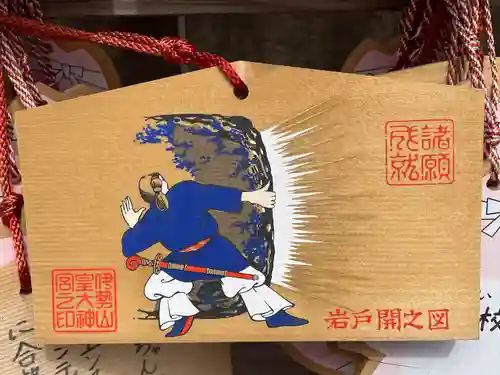 諸願
成就
伊勢山
皇大神
宮之印
岩戸開之図